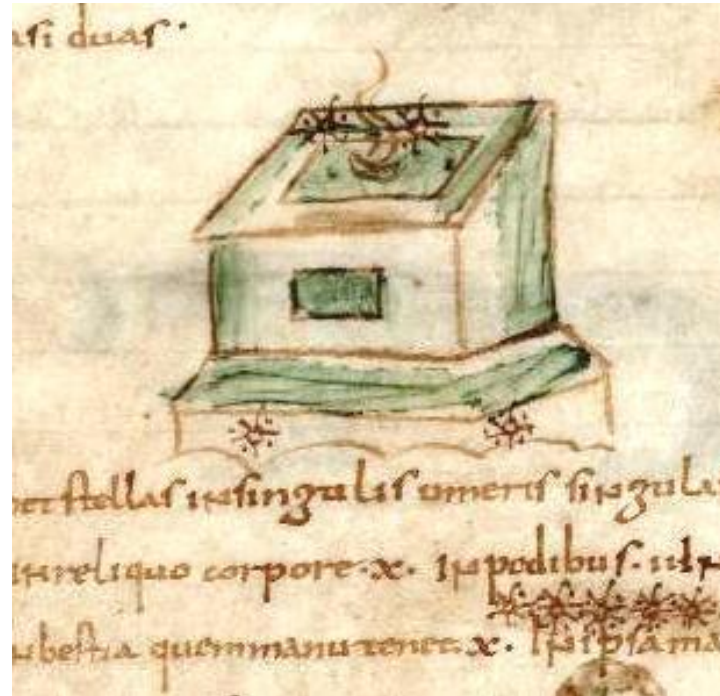 asi duas.
stellas insingulis umeris singula
inreliquo corpore.x. inpedibus.
bestia quemmanu tenet x. Inipsa ma